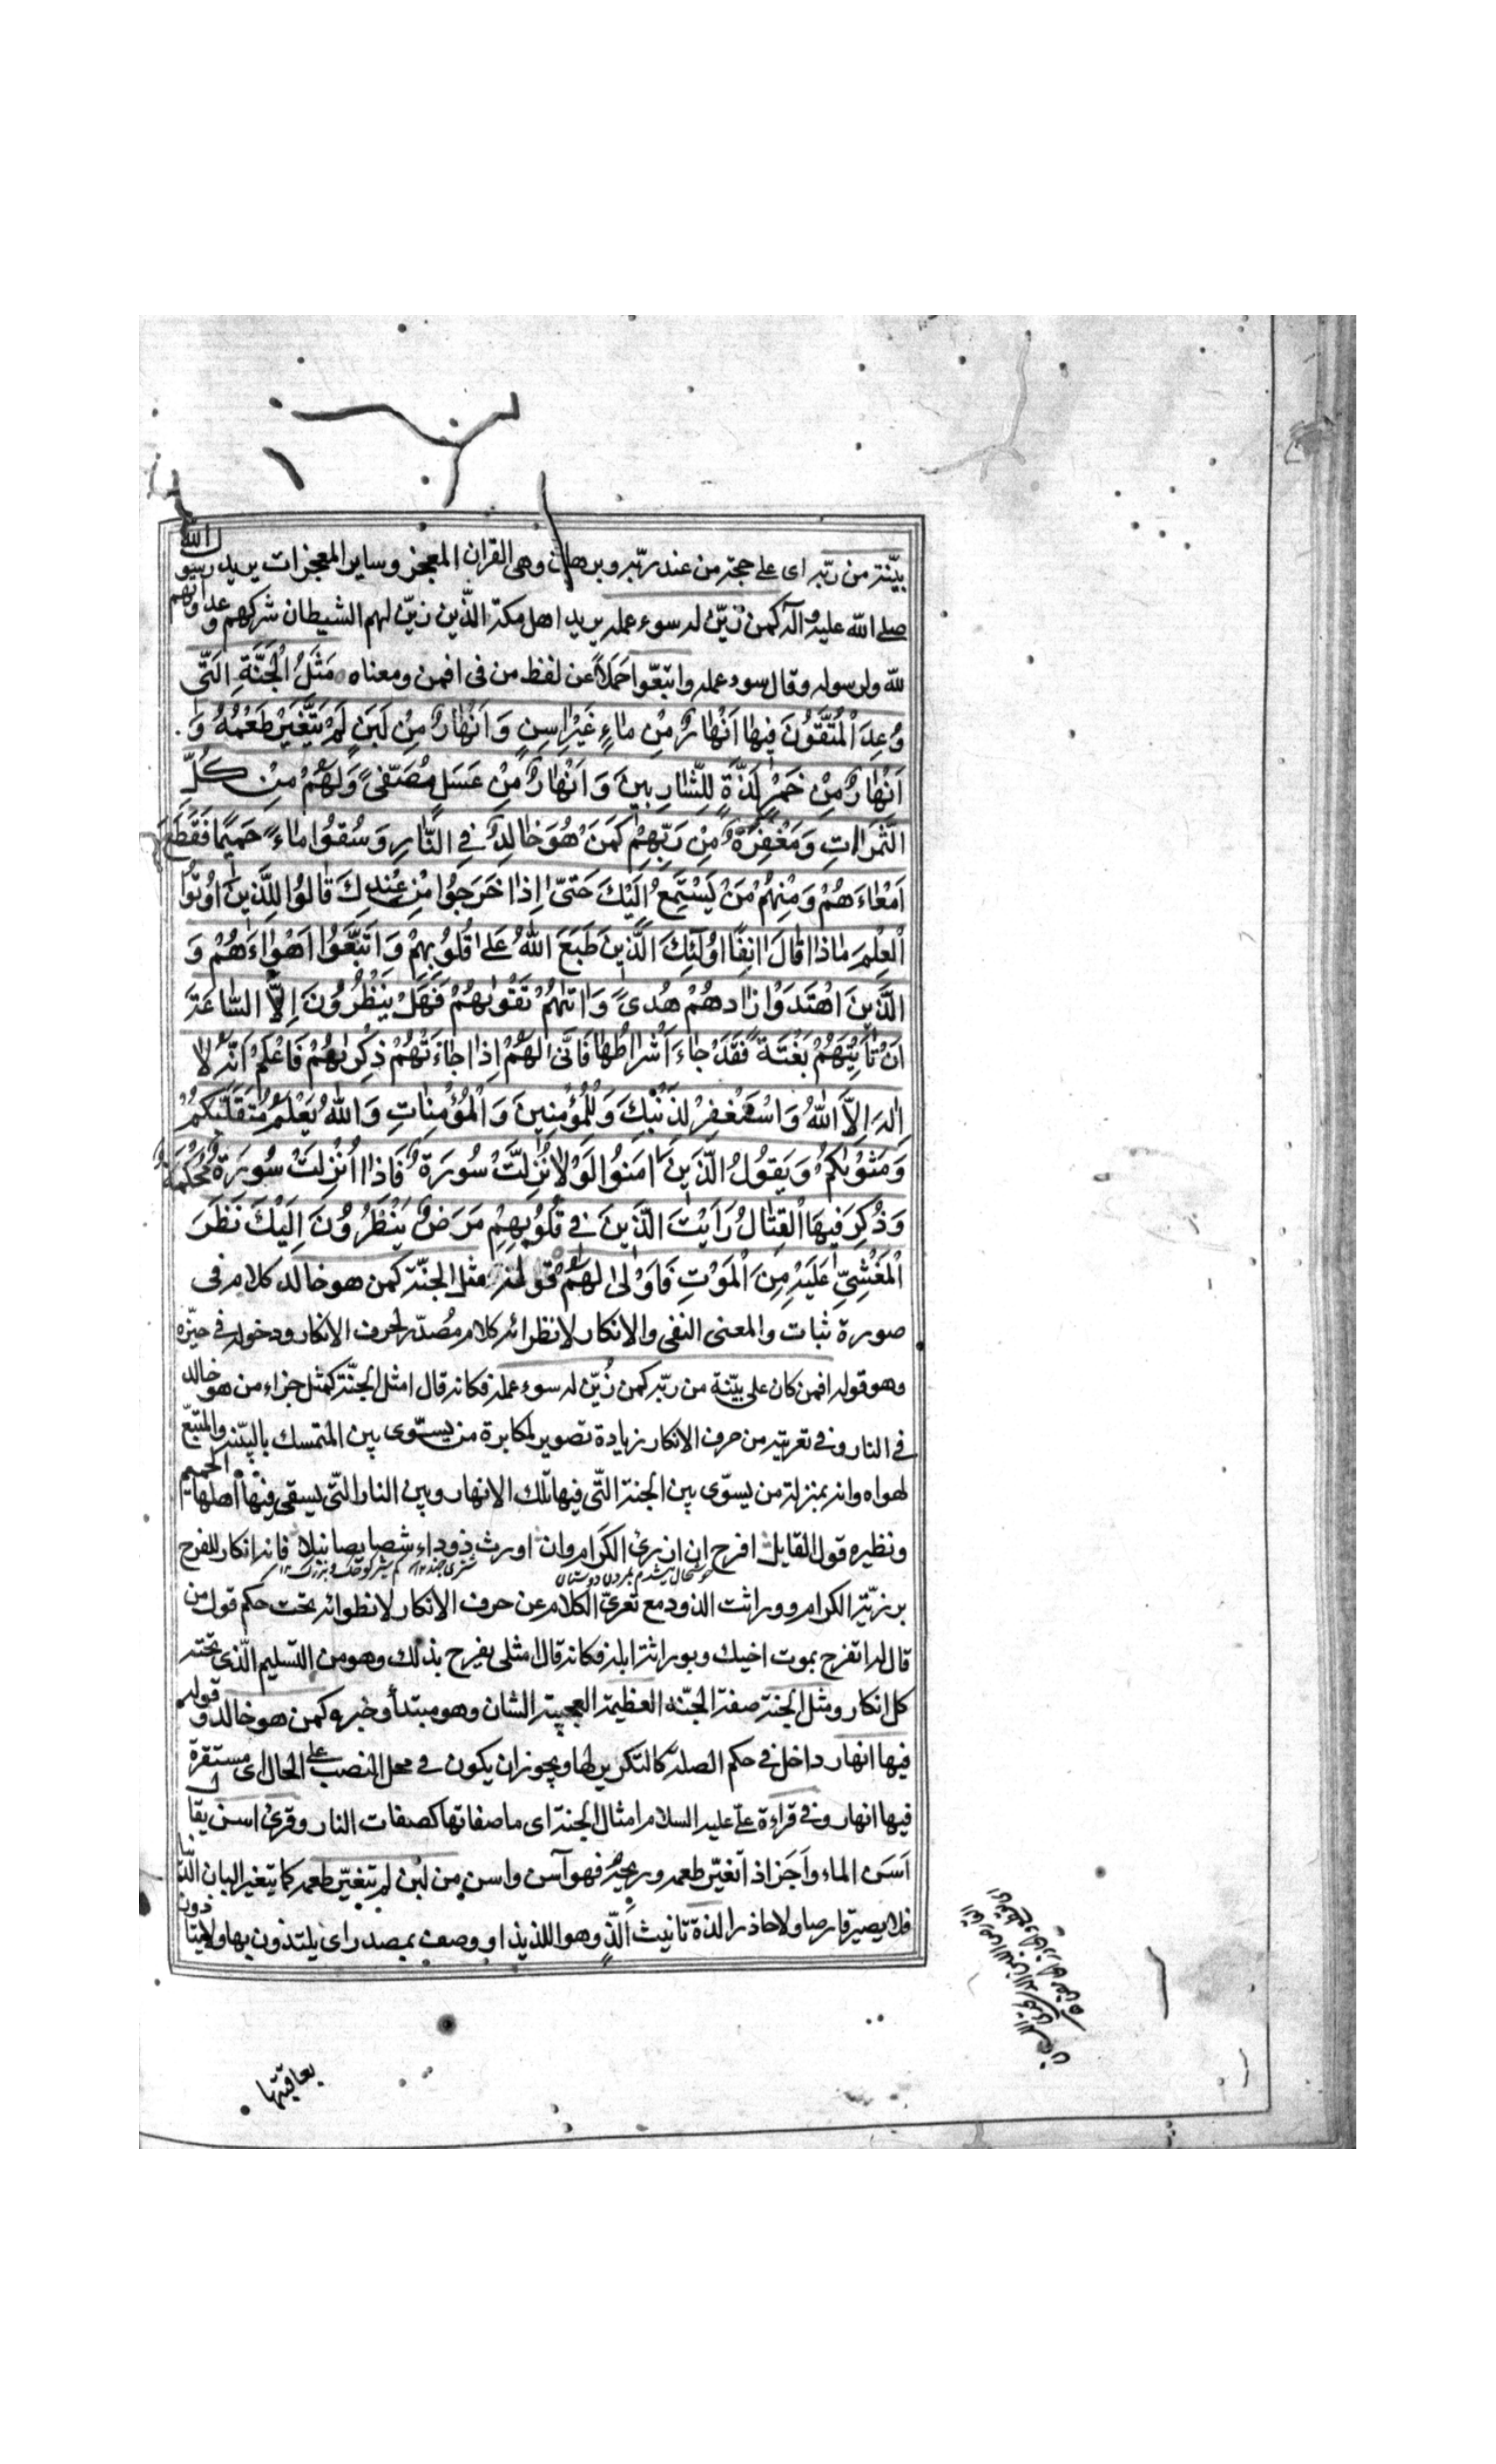 بيّنة من ربّه اى على حجة من عند ربّه وبرهان وهى القران المعجز وساير المعجزات يريد رسول الله
صلى الله عليه وآله كمن زيّن له سوء عمله يريد اهل مكة الّذين زيّن لهم الشيطان شركهم وعداوتهم
لله ولرسوله وقال سوء عمله واتبعوا حملاً عن لفظ من فى افمن ومعناه مَثَلُ الْجَنَّةِ الَّتى
وُعِدَ الْمُتَّقُونَ فيها اَنْهارٌ مِنْ ماءٍ غَيْرِ اسِنٍ وَ اَنْهارٌ مِنْ لَبَنٍ لَمْ يَتَغَيَّرْ طَعْمُهُ وَ
اَنْهارٌ مِنْ خَمْرٍ لَذَّةٍ لِلشّارِبينَ وَ اَنْهارٌ مِنْ عَسَلٍ مُصَفّىً وَلَهُمْ مِنْ كُلِّ
الثَّمَراتِ وَمَغْفِرَةٌ مِنْ رَبِّهِمْ كَمَنْ هُوَ خالِدٌ فِى النّارِ وَسُقُوا ماءً حَميمًا فَقَطَّعَ
اَمْعاءَهُمْ وَمِنْهُمْ مَنْ يَسْتَمِعُ اِلَيْكَ حَتّى اِذا خَرَجُوا مِنْ عِنْدِكَ قالُوا لِلَّذينَ اُوتُوا
الْعِلْمَ ماذا قالَ انِفًا اُولئِكَ الَّذينَ طَبَعَ اللهُ عَلى قُلُوبِهِمْ وَ اتَّبَعُوا اَهْواءَهُمْ وَ
الَّذينَ اهْتَدَوْا زادَهُمْ هُدىً وَ اتيهُمْ تَقْويهُمْ فَهَلْ يَنْظُرُونَ اِلاَّ السّاعَةَ
اَنْ تَأْتِيَهُمْ بَغْتَةً فَقَدْ جاءَ اَشْراطُها فَاَنّى لَهُمْ اِذا جاءَتْهُمْ ذِكْريهُمْ فَاعْلَمْ اَنَّهُ لا
اِلهَ اِلاَّ اللهُ وَ اسْتَغْفِرْ لِذَنْبِكَ وَ لِلْمُؤْمِنينَ وَ الْمُؤْمِناتِ وَ اللهُ يَعْلَمُ مُتَقَلَّبَكُمْ
وَمَثْويكُمْ وَيَقُولُ الَّذينَ امَنُوا لَوْلا نُزِّلَتْ سُورَةٌ فَاِذا اُنْزِلَتْ سُورَةٌ مُحْكَمَةٌ
وَذُكِرَ فيهَا الْقِتالُ رَاَيْتَ الَّذينَ فى قُلُوبِهِمْ مَرَضٌ يَنْظُرُونَ اِلَيْكَ نَظَرَ
الْمَغْشِىِّ عَلَيْهِ مِنَ الْمَوْتِ فَاَوْلى لَهُمْ قوله مثل الجنّة كمن هو خالد كلام فى
صورة ثبات والمعنى النفى والانكار لانظوائه كلام مُصدّر لحرف الانكار ودخوله فى حيّزه
وهو قوله افمن كان على بيّنة من ربّه كمن زُيّن له سوء عمله فكانه قال امثل الجنّة كمثل جزاء من هو خالد
فى النار وفى تعريته من حرف الانكار زيادة تصوير لمكابرة من يسوّى بين المتمسك بالبيّنة والمتّبع
لهواه وانه بمنزلة من يسوّى بين الجنة التّى فيها تلك الانهار وبين النار التّى يسقى فيها اهلها الحميم
ونظيره قول القايل افرح ان ارزى الكرام وان اورث ذودا شصايصا نبلا فانه انكار للفرح
برزيّة الكرام ووراثت الذود مع تعرىّ الكلام عن حرف الانكار لانطوائه تحت حكم قول من
قال له اتفرح بموت اخيك وبوراثة ابله فكانه قال امثلى يفرح بذلك وهو من التسليم الّذى تحته
كل انكار ومثل الجنة صفة الجنّه العظيمة العجيبة الشان وهو مبتدأ وخبره كمن هو خالد وقوله
فيها انهار داخل فى حكم الصلة كالتكرير لها ويجوز ان يكون فى محل النصب على الحال اى مستقرة
فيها انهار وفى قراءة علىّ عليه السلام امثال الجنة اى ما صفاتها كصفات النار وقرئ اسن يقال
اَسَن الماء واَجَن اذا تغيّر طعمه وريحهُ فهو آسن واسن من لبن لم يتغيّر طعمه كما يتغير البان الدّنيا
فلا يصير قارصا ولا حاذرا لذة تانيث اللّذ وهو اللذيذ او وصف بمصدر اى يلتذون بها ولا يتاذون
بعاقبتها